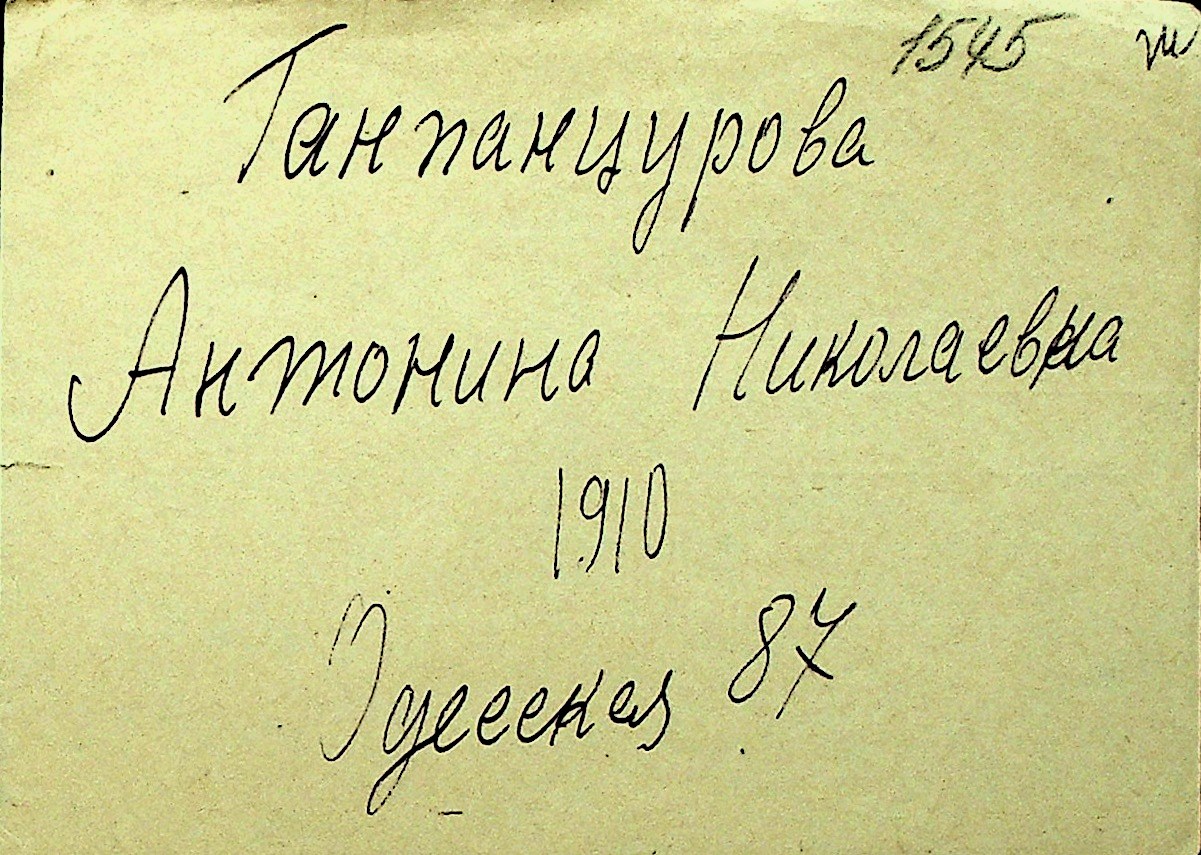 1545
Ганпанцурова
Антонина Николаевна
1910
Одесская 87